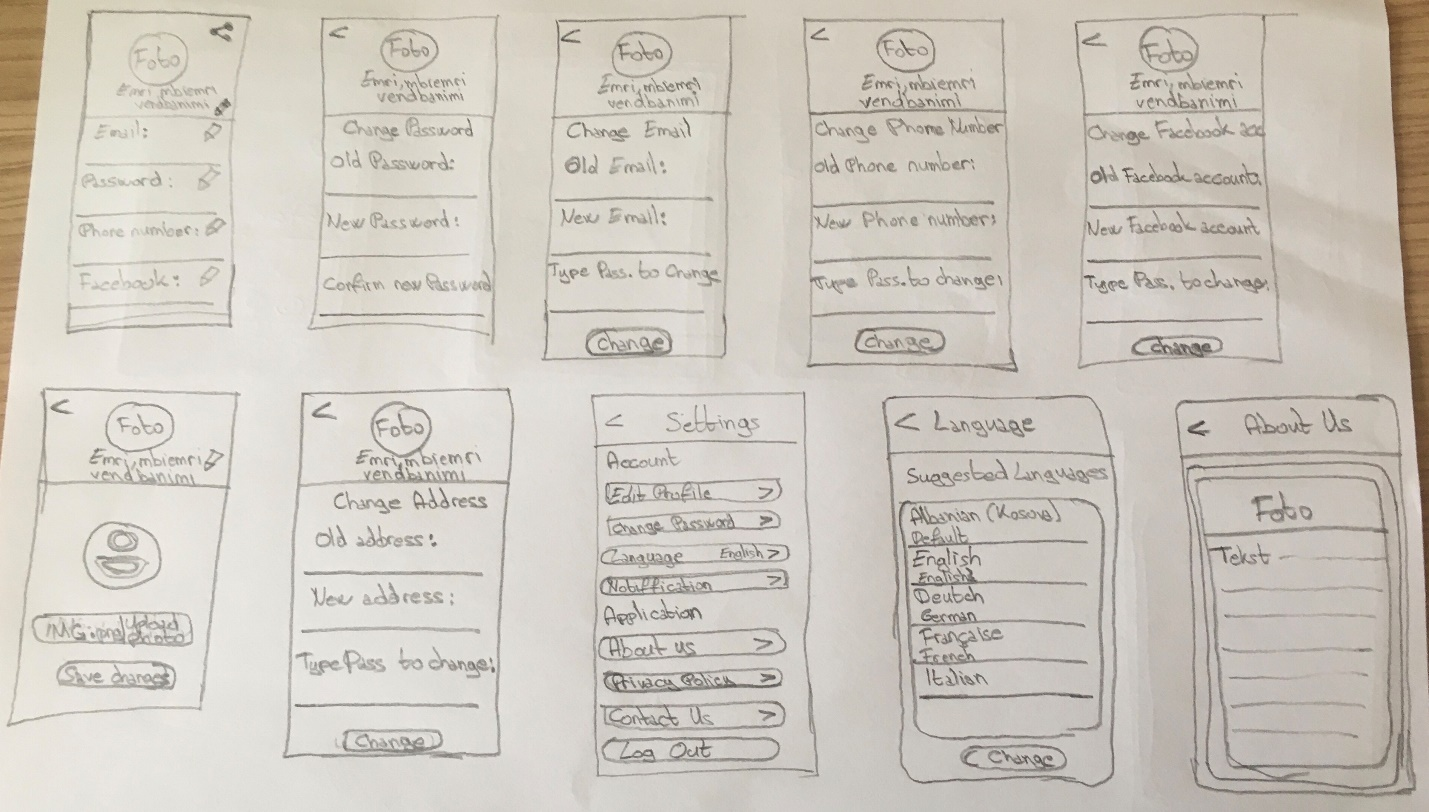 Foto
Emri, mbiemri
vendbanimi
Email:
Password:
Phone number:
Facebook:
<
Foto
Emri, mbiemri
vendbanimi
Change Password
Old Password:
New Password:
Confirm new Password
<
Foto
Emri, mbiemri
vendbanimi
Change Email
Old Email:
New Email:
Type Pass. to Change
Change
<
Foto
Emri, mbiemri
vendbanimi
Change Phone Number
Old Phone number:
New Phone number:
Type Pass. to change:
Change
<
Foto
Emri, mbiemri
vendbanimi
Change Facebook acc
Old Facebook account:
New Facebook account
Type Pass. to change:
Change
<
Foto
Emri, mbiemri
vendbanimi
IMG.png Upload photo
Save changes
<
Foto
Emri, mbiemri
vendbanimi
Change Address
Old address:
New address:
Type Pass to change:
Change
< Settings
Account
Edit Profile >
Change Password >
Language English >
Notiffication >
Application
About us >
Privacy Policy >
Contact Us >
Log Out
< Language
Suggested Languages
Albanian (Kosova)
Default
English
English
Deutch
German
Française
French
Italian
Change
< About Us
Foto
Tekst